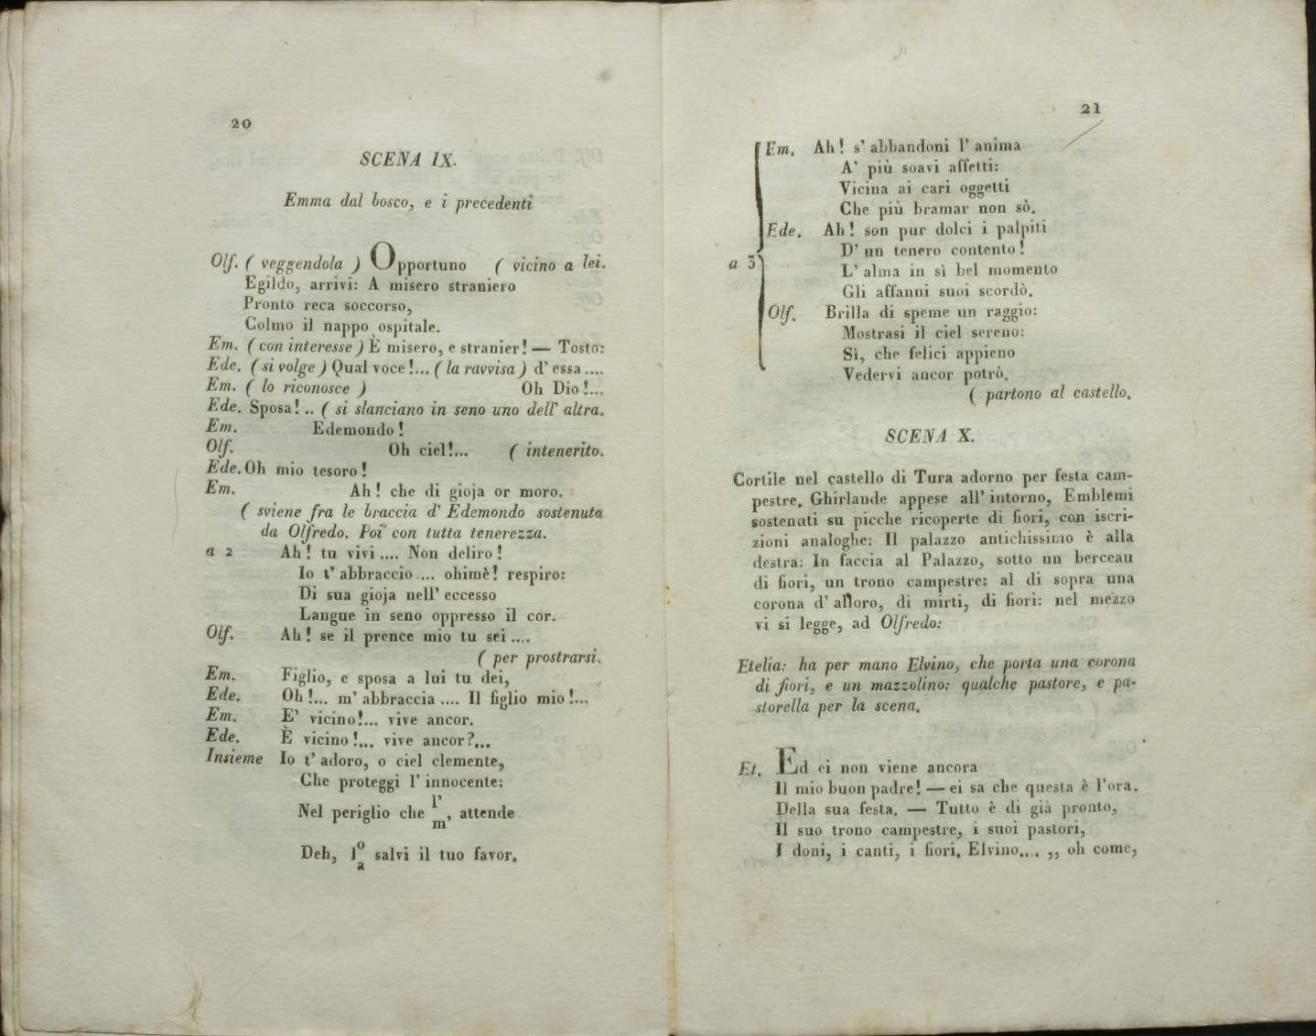 20
SCENA IX.
Emma dal bosco, e i precedenti
Olf. ( veggendola ) Opportuno ( vicino a lei.
Egildo, arrivi: A misero straniero
Pronto reca soccorso,
Colmo il nappo ospitale.
Em. ( con interesse ) È misero, e stranier! — Tosto:
Ede. ( si volge ) Qual voce!... ( la ravvisa ) d' essa ....
Em. ( lo riconosce ) Oh Dio!...
Ede. Sposa! .. ( si slanciano in seno uno dell' altra.
Em. Edemondo!
Olf. Oh ciel!... ( intenerito.
Ede. Oh mio tesoro!
Em. Ah! che di gioja or moro.
( sviene fra le braccia d' Edemondo sostenuta
da Olfredo. Poi con tutta tenerezza.
a 2 Ah! tu vivi .... Non deliro!
Io t' abbraccio .... ohimè! respiro:
Di sua gioja nell' eccesso
Langue in seno oppresso il cor.
Olf. Ah! se il prence mio tu sei ....
( per prostrarsi.
Em. Figlio, e sposa a lui tu dei,
Ede. Oh!... m' abbraccia .... Il figlio mio!...
Em. E' vicino!... vive ancor.
Ede. È vicino!... vive ancor?...
Insieme Io t' adoro, o ciel clemente,
Che proteggi l' innocente:
Nel periglio che l' m', attende
Deh, lo a salvi il tuo favor.
21
a 3
Em. Ah! s' abbandoni l' anima
A' più soavi affetti:
Vicina ai cari oggetti
Che più bramar non sò.
Ede. Ah! son pur dolci i palpiti
D' un tenero contento!
L' alma in sì bel momento
Gli affanni suoi scordò.
Olf. Brilla di speme un raggio:
Mostrasi il ciel sereno:
Sì, che felici appieno
Vedervi ancor potrò.
( partono al castello.
SCENA X.
Cortile nel castello di Tura adorno per festa cam-
pestre. Ghirlande appese all' intorno, Emblemi
sostenuti su picche ricoperte di fiori, con iscri-
zioni analoghe: Il palazzo antichissimo è alla
destra: In faccia al Palazzo, sotto un berceau
di fiori, un trono campestre: al di sopra una
corona d' alloro, di mirti, di fiori: nel mezzo
vi si legge, ad Olfredo:
Etelia: ha per mano Elvino, che porta una corona
di fiori, e un mazzolino: qualche pastore, e pa-
storella per la scena.
Et. Ed ei non viene ancora
Il mio buon padre! — ei sa che questa è l'ora.
Della sua festa. — Tutto è di già pronto,
Il suo trono campestre, i suoi pastori,
I doni, i canti, i fiori. Elvino.... ,, oh come,